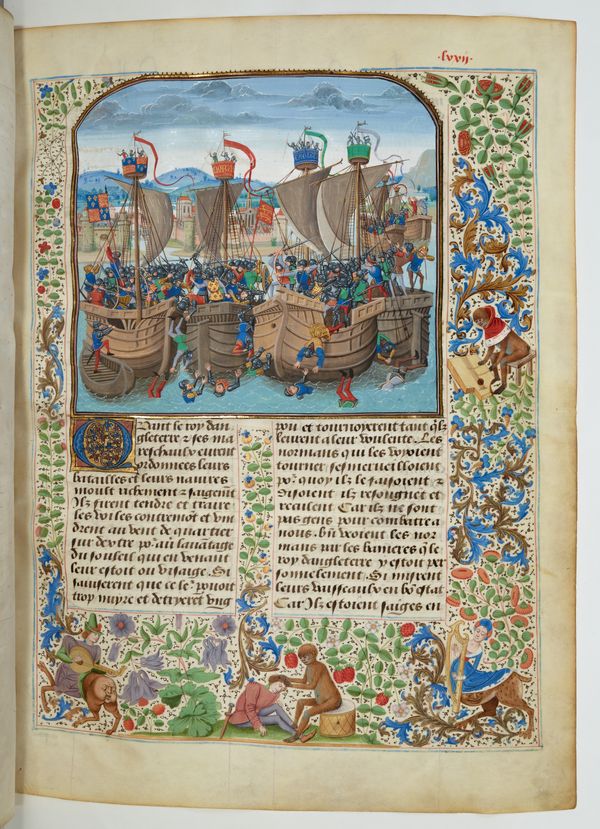 .lxxii.
Quant le roy dan
gleterre & ses ma
reschaulx eurent
ordonnees leurs
batailles et leurs nauires
moult richement & saigent
Ilz firent tendre et traire
les voiles contremont et vin
drent au vent de quartier
sur dextre por auoir lauantage
du souleil qui en venant
leur estoit ou visaige. Si
sauiserent que ce le pouoit
trop nuyre et detryerent vng
pou et tournoyerent tant qlz
leurent a leur voulente. Les
normans qui les veoient
tourner sesmerueilloient
por quoy ilz le faisoient &
disoient ilz resongnent et
reculent Car ilz ne sont
pas gens pour combatre a
nous. bien veoient les nor
mans par les banieres q le
roy dangleterre y estoit per
sonnelement. Si misrent
leurs vaisseaulx en bon estat
Car ilz estoient saiges en